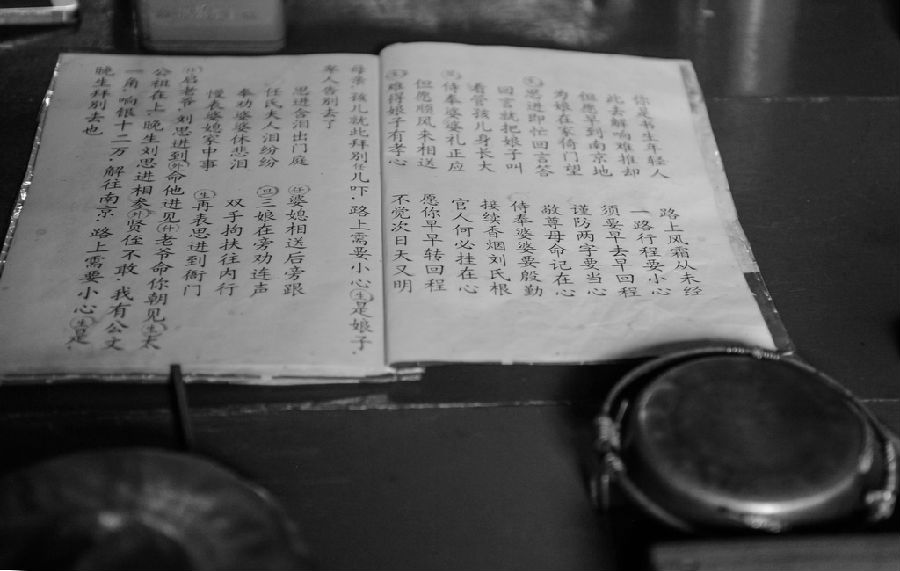 你是书生年轻人 路上风霜从未经
此去解响难推却 一路行程要小心
但愿早到南京地 须要早去早回程
为娘在家倚门望 谨防两字要当心
生 思进即忙回言答 敬尊母命记在心
回言就把娘子叫 侍奉婆婆要殷勤
看管孩儿身长大 接续香烟刘氏根
旦 侍奉婆婆礼正应 官人何必挂在心
但愿顺风来相送 愿你早早转回程
生 难得娘子有孝心 不觉次日天又明
母亲，孩儿就此拜别任儿吓，路上需要小心 生 是娘子，
家人告别去了
思进含泪出门庭 任 婆媳相送后旁跟
任氏夫人泪纷纷 旦 三娘在旁劝连声
奉劝婆婆休悲泪 双手拘扶往内行
慢表婆媳家中事 生 再表思进到衙门
启老爷，刘思进到 外 命他进见 老爷命你朝见 生 太
公祖在上，晚生刘思进相参 外 贤侄不敢，我有公文
一角，响银十二万，解往南京，路上需要小心 生 是，
晚生拜别去也